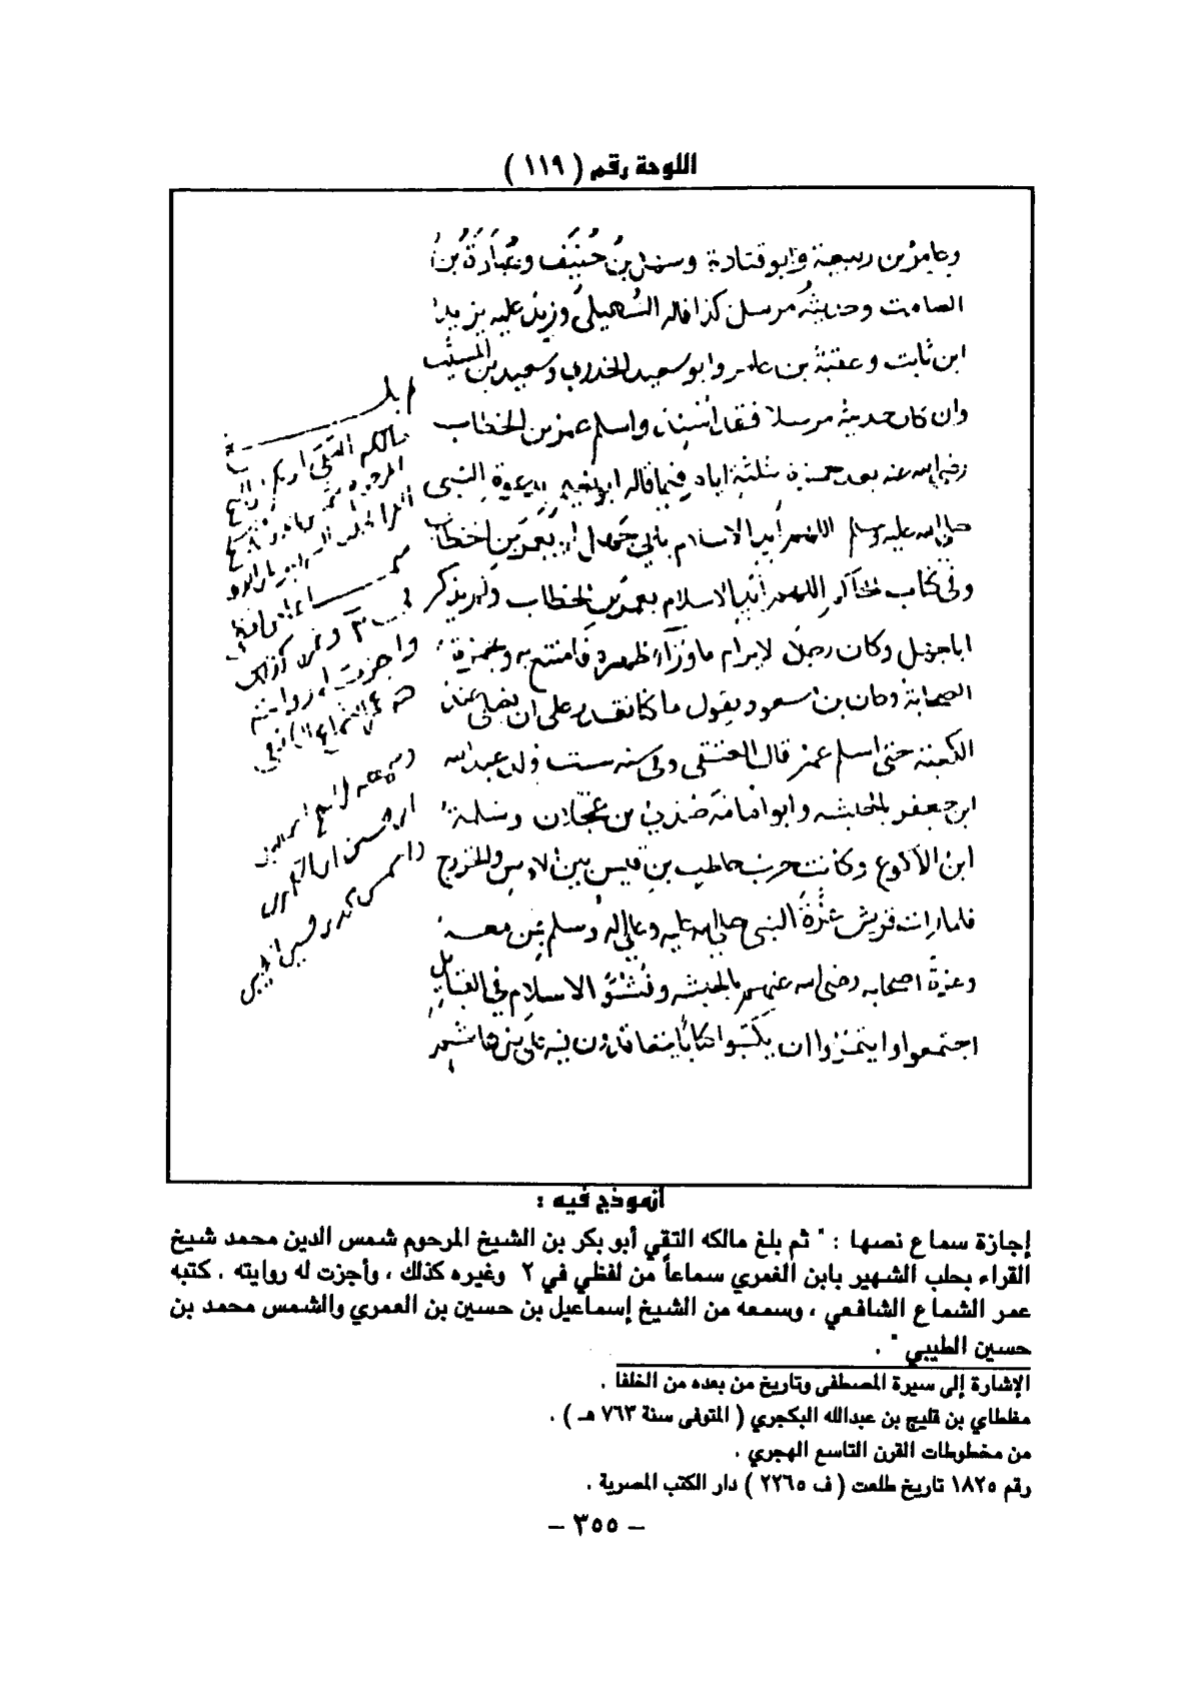 اللوحة رقم ( ١١٩ )
وعامر بن ربيعة وابو قتادة وسهل بن حُنَيف وعُبادَة بن
الصامت وحديثه مرسل كذا قاله السُّهيلي وزيد عليه يزيد
ابن ثابت وعقبة بن عامر وابو سعيد الخدري وسعيد بن المسيب
وان كان حديثه مرسلا فقال واسلم عمر بن الخطاب
رضي الله عنه بعد حمزة بثلثة ايام فيما قاله ابو نعيم بدعوة النبي
صلى الله عليه وسلم اللهم أيد الاسلام بابي جهل او بعمر بن الخطاب
وفي كتاب الحاكم اللهم أيد الاسلام بعمر بن الخطاب ولم يذكر
اباجهل وكان رجلا لا يرام ما وراء ظهره فامتنع به وبحمزة
الصحابة وكان بن مسعود يقول ما كنا نقدر على ان نصلي عند
الكعبة حتى اسلم عمر قال العتقي وفي سنه ست ولد عبد الله
ابن جعفر بالحبشه وابو امامة صُدَيّ بن عَجلان وسلمة
ابن الأكوع وكانت حرب حاطب بن قيس بين الاوس والخزرج
فلما رات قريش عزّة النبي صلى الله عليه وعلى اله وسلم بمن معه
وعزة اصحابه رضي الله عنهم بالحبشه وفُشُوّ الاسلام في القبايل
اجتمعوا وايتمروا ان يكتبوا كتابًا يتعاقدون فيه على بني هاشم
ثم بلغ
مالكه التقي ابو بكر بن الشيخ
المرحوم
القرا بحلب الشهير بابن الغمري
سماعا
في ٢ وغيره كذلك
واجزت له روايته
كتبه عمر الشماع الشافعي
وسمعه
والشمس محمد بن حسين الطيبي
أنموذج فيه :
إجازة سماع نصها : " ثم بلغ مالكه التقي أبو بكر بن الشيخ المرحوم شمس الدين محمد شيخ
القراء بحلب الشهير بابن الغمري سماعاً من لفظي في ٢ وغيره كذلك ، وأجزت له روايته . كتبه
عمر الشماع الشافعي ، وسمعه من الشيخ إسماعيل بن حسين بن العمري والشمس محمد بن
حسين الطيبي " .
الإشارة إلى سيرة المصطفى وتاريخ من بعده من الخلفا .
مغلطاي بن قليج بن عبدالله البكجري ( المتوفى سنة ٧٦٣ هـ ) .
من مخطوطات القرن التاسع الهجري .
رقم ١٨٢٥ تاريخ طلعت ( ف ٢٢٦٥ ) دار الكتب المصرية .
– ٣٥٥ –